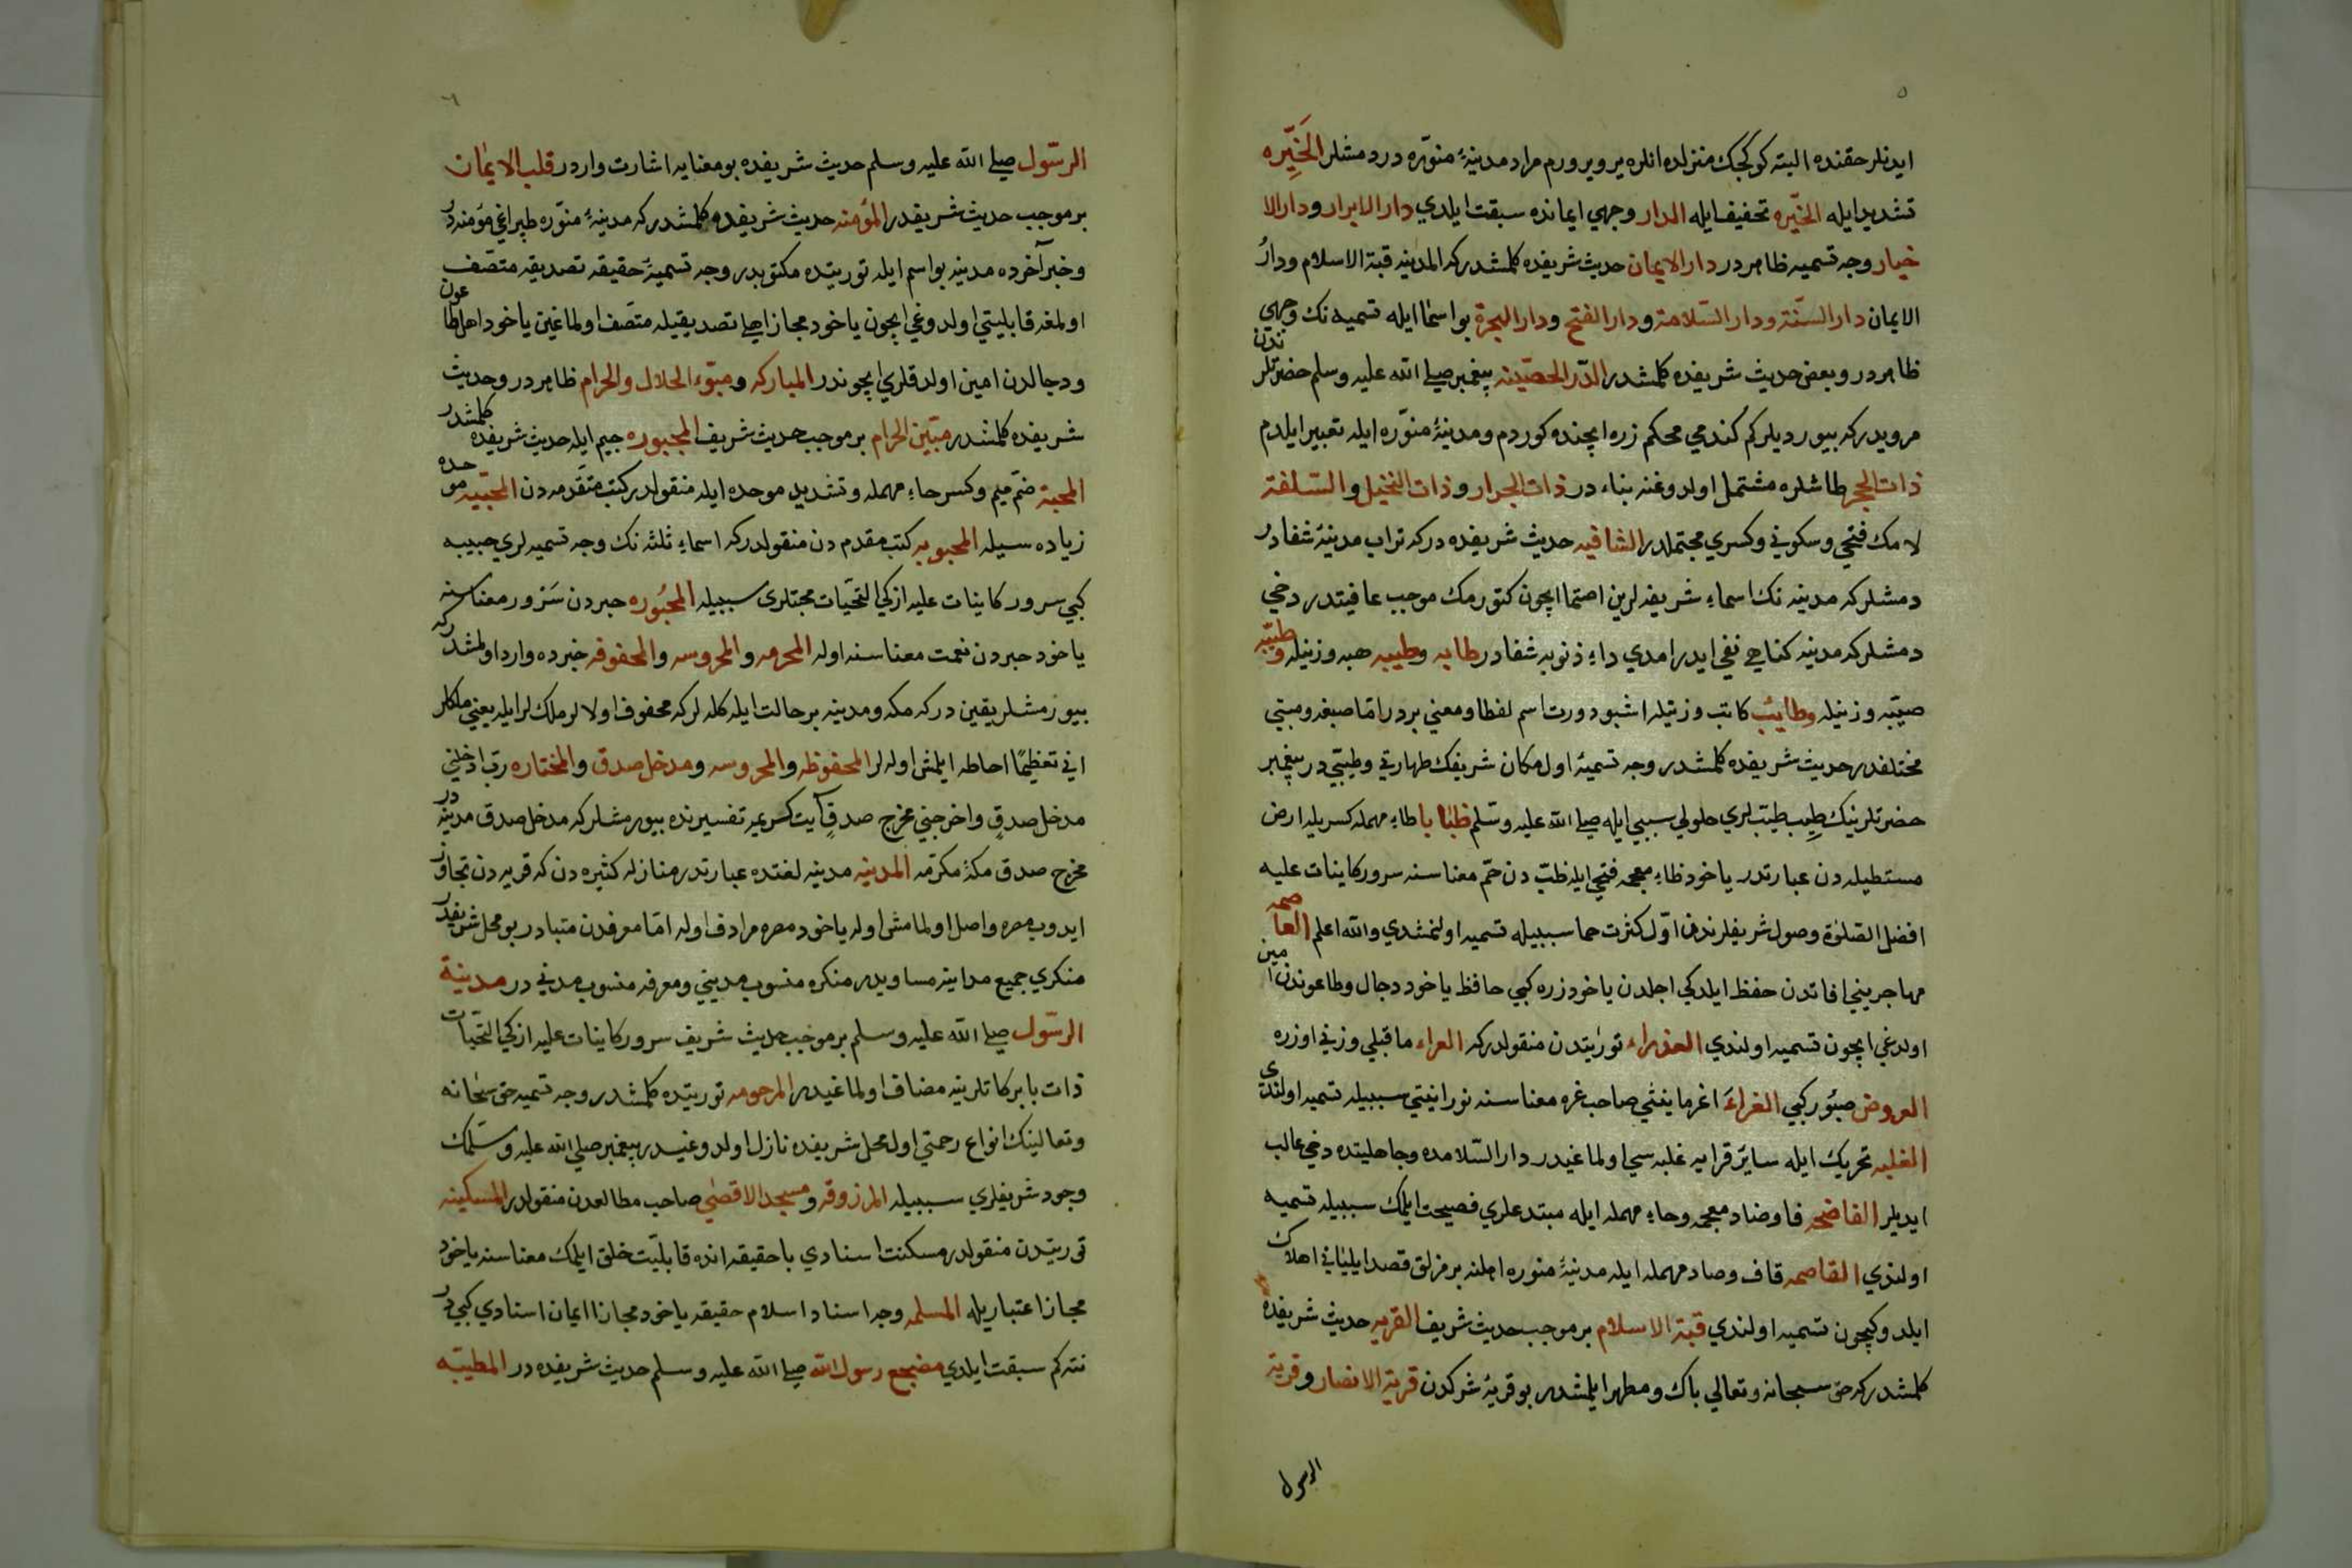 ٥
ايدنلر حقنده البته كوكجك منزلده انلره ير ويرورم مراد مدينۀ منوّره در دمشلر الخَيِّره
تشديد ايله الخيّره تخفيف ايله الدار وجهي ايمانده سبقت ايلدي دار الابرار ودار الا
خيار وجه تسميه ظاهر در دار الايمان حديث شريفده كلمشدر كه المدينه قبة الاسلام ودارُ
الايمان دار السنّة ودار السّلامة ودار الفتح ودار الهجرة بو اسما ايله تسميه نك وجهي
ظاهر در وبعض حديث شريفده كلمشدر الدّرّ الحصّينه پيغمبر صلى الله عليه وسلم حضرتلرندن
مرويدر كه بيورديلر كم كندمي محكم زره ايچنده كوردم ومدينۀ منوّره ايله تعبير ايلدم
ذات الحجر طاشلره مشتمل اولدوغنه بناء در ذات الحرار وذات النخيل والسّلفة
لامك فتحي وسكوني وكسري محتملدر الشافيه حديث شريفده در كه تراب مدينۀ شفادر
دمشلر كه مدينه نك اسماء شريفه لرين اصتما ايچون كتورمك موجب عافيتدر دخي
دمشلر كه مدينه كناهي نفي ايدر امدي داء ذنوبه شفادر طابه وطيبه هبه وزنيله وطيّبه
صيّبه وزنيله وطايب كاتب وزنيله اشبو دورت اسم لفظا ومعني بردر امّا صيغه ومبني
مختلفدر حديث شريفده كلمشدر وجه تسميۀ اول مكان شريفك طهارتي وطيبي در پيغمبر
حضرتلرينك طيب طيبتلري حلولي سببي ايله صلى الله عليه وسلّم ظبابا طاء مهمله كسريله ارض
مستطيله دن عبارتدر ياخود ظاء معجمه فتحي ايله ظبّ دن حمّ معناسنه سرور كاينات عليه
افضل الصّلوة وصول شريفلرندن اوّل كثرت حما سببيله تسميه اولنمشدي والله اعلم العاصمه
مهاجريني افاتدن حفظ ايلدكي اجلدن ياخود زره كبي حافظ ياخود دجال وطاعوندن امين
اولدغي ايچون تسميه اولندي العذراء توريتدن منقولدر كه العراء ماقبلي وزني اوزره
العروض صبُور كبي الغراءَ اغر مايغثي صاحب غره معناسنه نورانيتي سببيله تسميه اولندي
الغلبه تحريك ايله ساير قرايه غلبه سي اولماغيدر دار السّلامده وجاهليتده دخي غالب
ايديلر الفاضحه فا وضاد معجمه وحاء مهمله ايله مبتدعلري فصيحت ايلمك سببيله تسميه
اولندي القاصمه قاف وصاد مهمله ايله مدينۀ منوره اهلنه برمزلق قصد ايلياني اهلاك
ايلدوكيچون تسميه اولندي قبة الاسلام بر موجب حديث شريف القريه حديث شريفده
كلمشدر كه حق سبحانه وتعالي پاك ومطهر ايلمشدر بو قريۀ شركدن قرية الانصار وقرية
الرسول
٦
الرسّول صلى الله عليه وسلم حديث شريفده بو معنايه اشارت واردر قلب الايمان
بر موجب حديث شريفدر المؤمنه حديث شريفده كلمشدر كه مدينۀ منوّره طپراغي مؤمنه در
وخبر آخرده مدينه بو اسم ايله توريتده مكتوبدر وجه تسميۀ حقيقه تصديقه متصّف
اولمغه قابليتي اولدوغي ايچون ياخود مجازا هلي تصديقيله متصّف اولماغين ياخود اهل طاعون
ودجالدن امين اولدقلري ايچوندر المباركه ومبوّء الحلال والحرام ظاهر در وحديث
شريفده كلمشدر مبيّن الحرام بر موجب حديث شريف المجبوره جيم ايله حديث شريفده كلمشدر
المحبة ضمّ ميم وكسر حاء مهمله وتشديد موحده ايله منقولدر كتب متقّدمه دن المحببّه موحده
زياده سيله المحبوبه كتب مقدم دن منقولدر كه اسماء ثلثه نك وجه تسميه لري حبيبه
كبي سرور كاينات عليه ازكي التحيّات محبتلرى سببيله المحبُوره حبردن سَرور معناسنه
ياخود حبره دن نعمت معناسنه اوله المحرمه والمحروسه والمحفوفه خبرده وارد اولمشدر كه
بيورمشلر يقين در كه مكه ومدينه بر حالت ايله كله لر كه محفوف اولالر ملك لر ايله يعني ملكلر
اني تعظيمًا احاطه ايلمش اوله لر المحفوظه والمحروسه ومدخل صدق والمختاره ربّ ادخلني
مدخل صدقٍ واخرجني مخرج صدقٍ آيت كريمه تفسيرنده بيورمشلر كه مدخل صدق مدينه در
مخرج صدق مكۀ مكرّمه المدينه مدينه لغتده عبارتدر منازله كثيره دن كه قريه دن تجاوز
ايدوب مصره واصل اولمامش اوله ياخود مصره مرادف اوله امّا معرفدن متبادر بو محل شريفدر
منكري جميع مداينه مساويدر منكره منسوب مديني ومعرفه منسوب مدني در مدينة
الرسّول صلى الله عليه وسلم بر موجب حديث شريف سرور كاينات عليه ازكي التحيّات
ذات بابركاتلرينه مضاف اولماغيدر المرحومه توريتده كلمشدر وجه تسميه حق سبحانه
وتعالينك انواع رحمتي اول محل شريفده نازل اولدوغيدر پيغمبر صلي الله عليه وسلّمك
وجود شريفلري سببيله المرزوقه ومسجد الاقصي صاحب مطالعدن منقولدر المسكينه
توريتدن منقولدر مسكنت اسنادي با حقيقه انده قابليّت خلق ايلمك معناسنه ياخود
مجازا اعتباريله المسلمه وجه اسناد اسلام حقيقه ياخود مجازا ايمان اسنادي كبي در
نته كم سبقت ايلدي مضجع رسول الله صلى الله عليه وسلم حديث شريفده در المطيّبه